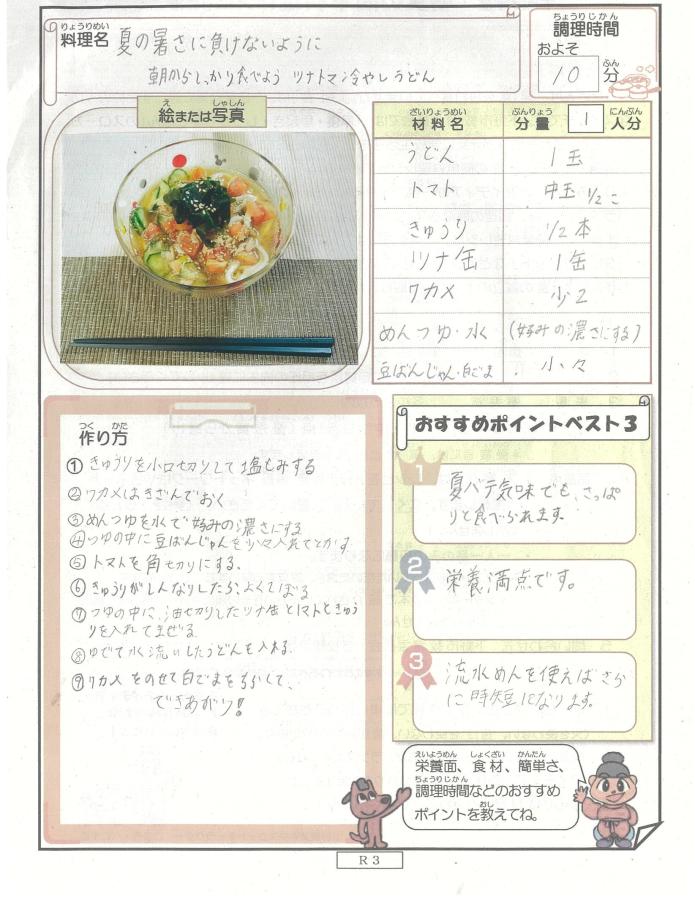 りょうりめい
料理名 夏の暑さに負けないように
朝からしっかり食べよう ツナトマ冷やしうどん
ちょうりじかん
調理時間
およそ
10 分
ぶん
え しゃしん
絵または写真
ざいりょうめい ぶんりょう にんぶん
材料名 分量 1 人分
うどん 1玉
トマト 中玉 1/2こ
きゅうり 1/2本
ツナ缶 1缶
ワカメ 少々
めんつゆ・水 (好みの濃さにする)
豆ばんじゃん・白ごま 小々
つく かた
作り方
① きゅうりを小口切りして塩もみする
② ワカメはきざんでおく
③ めんつゆを水で好みの濃さにする
④ つゆの中に豆ばんじゃんを少々入れてとかす
⑤ トマトを角切りにする。
⑥ きゅうりがしんなりしたら、よくしぼる
⑦ つゆの中に、油切りしたツナ缶とトマトときゅう
りを入れてまぜる
⑧ ゆでて水流いしたうどんを入れる。
⑨ ワカメをのせて白ごまをちらして、
できあがり!!
おすすめポイントベスト3
1
夏バテ気味でも、さっぱ
りと食べられます。
2
栄養満点です。
3
流水めんを使えばさら
に時短になります。
えいようめん しょくざい かんたん
栄養面、食材、簡単さ、
ちょうりじかん
調理時間などのおすすめ
おし
ポイントを教えてね。
R3